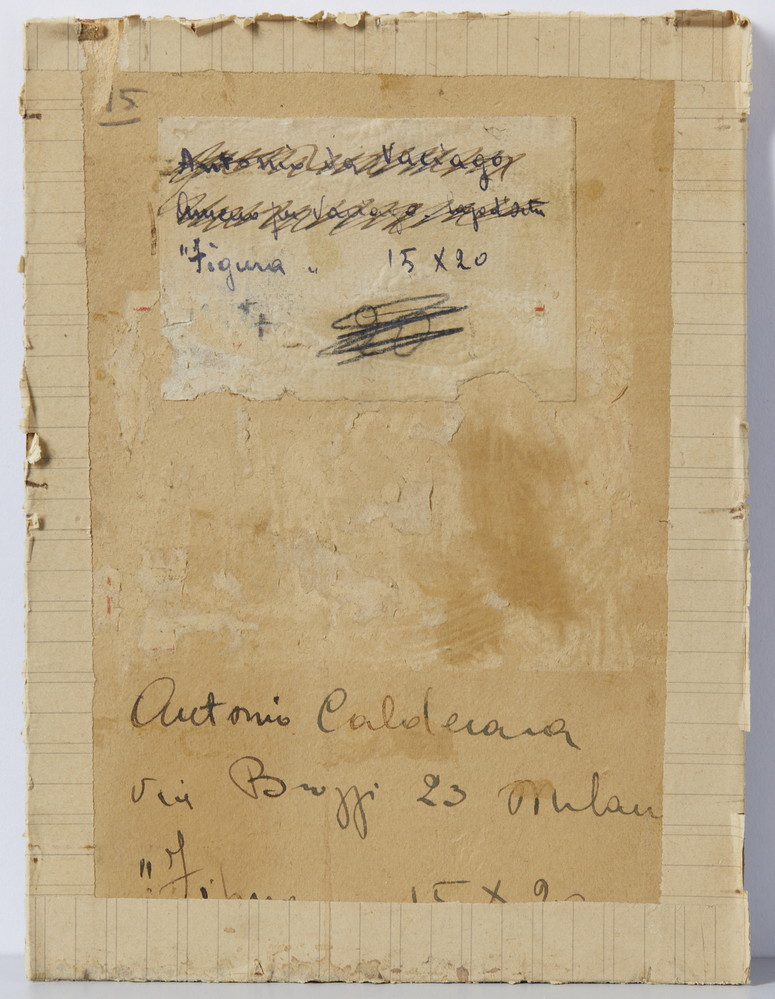 15
Antonio da Vaciago
"Figura" 15 X 20
20
Antonio Calderara
via Brozzi 23 Milan
"Figura 15 X 20